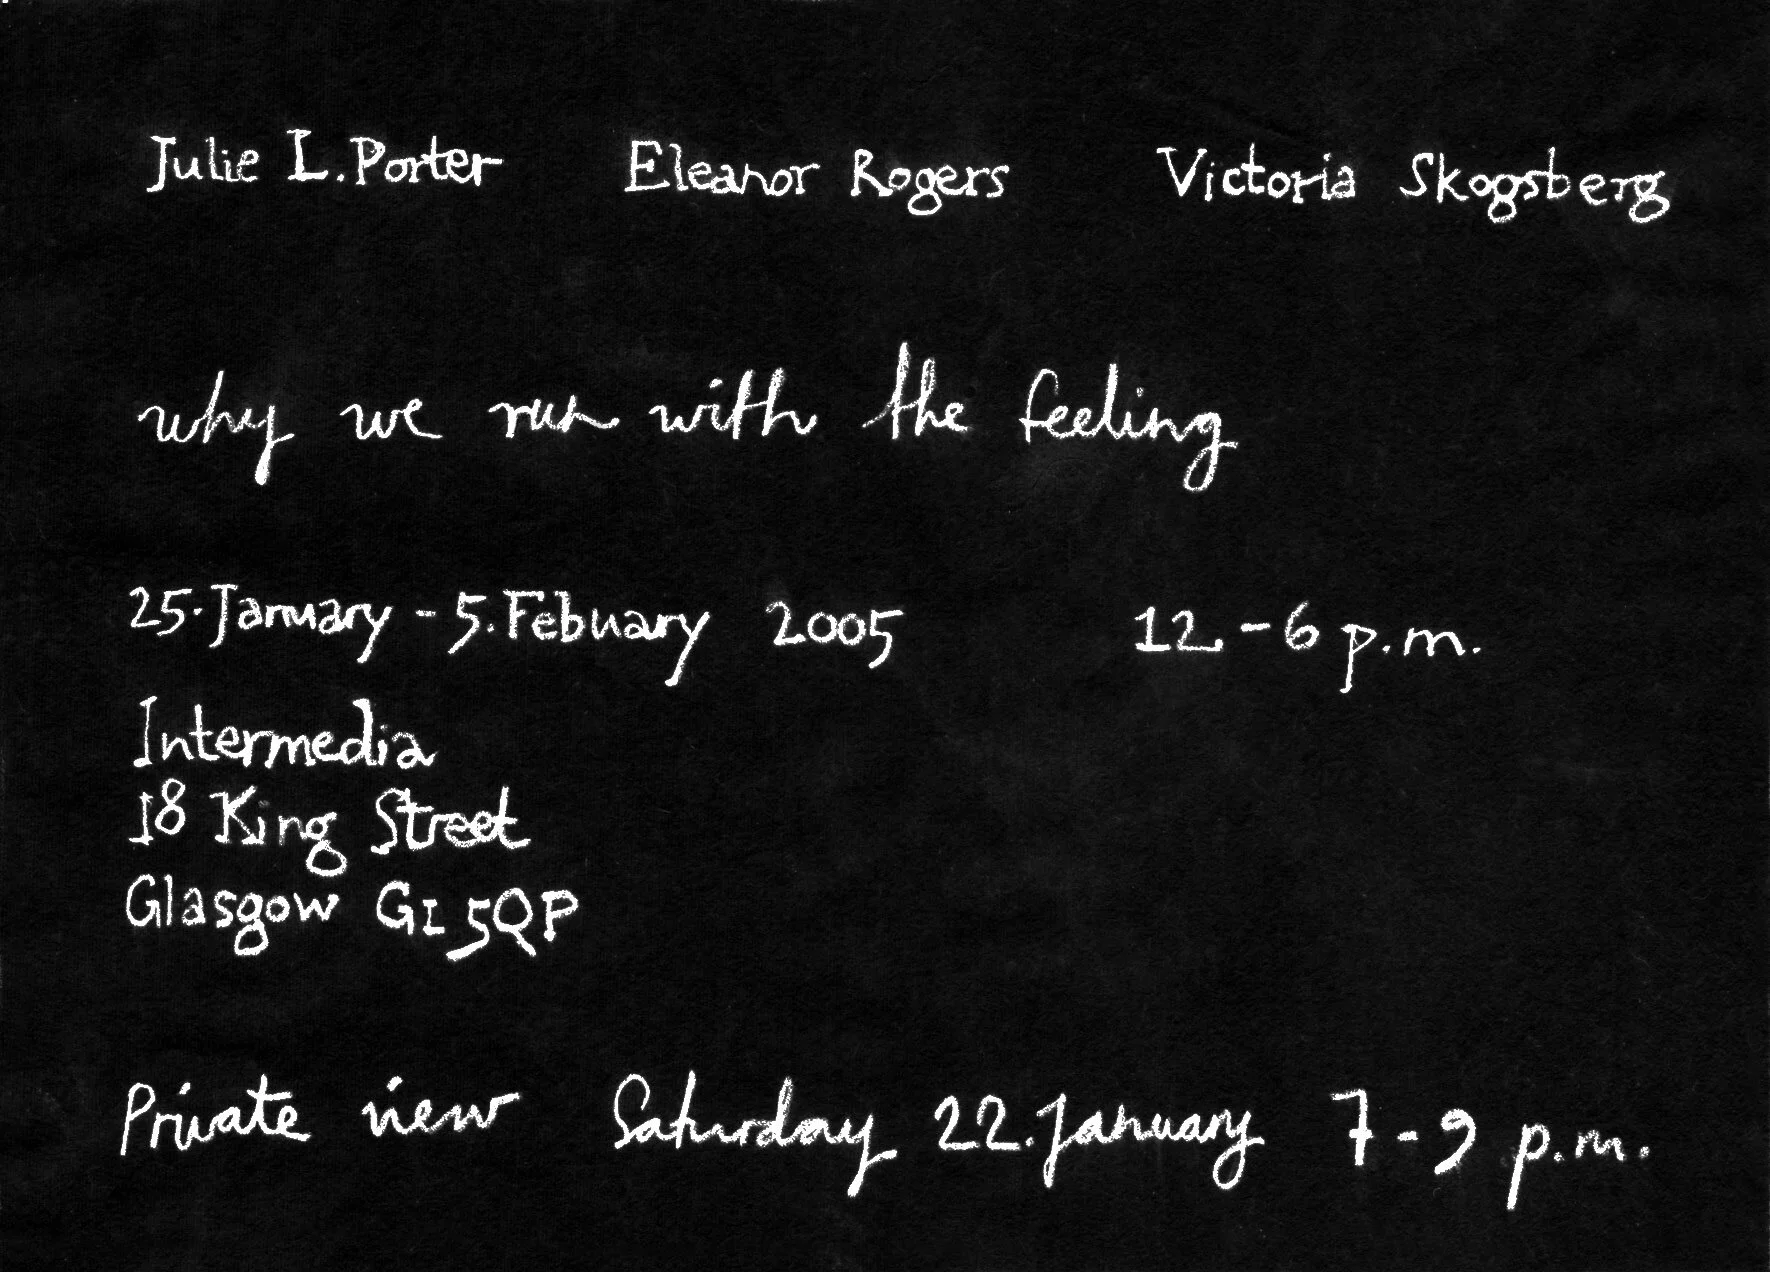 Julie L. Porter Eleanor Rogers Victoria Skogsberg
why we run with the feeling
25. January - 5. Febuary 2005 12 - 6 p.m.
Intermedia
18 King Street
Glasgow G1 5QP
Private view Saturday 22. January 7 - 9 p.m.